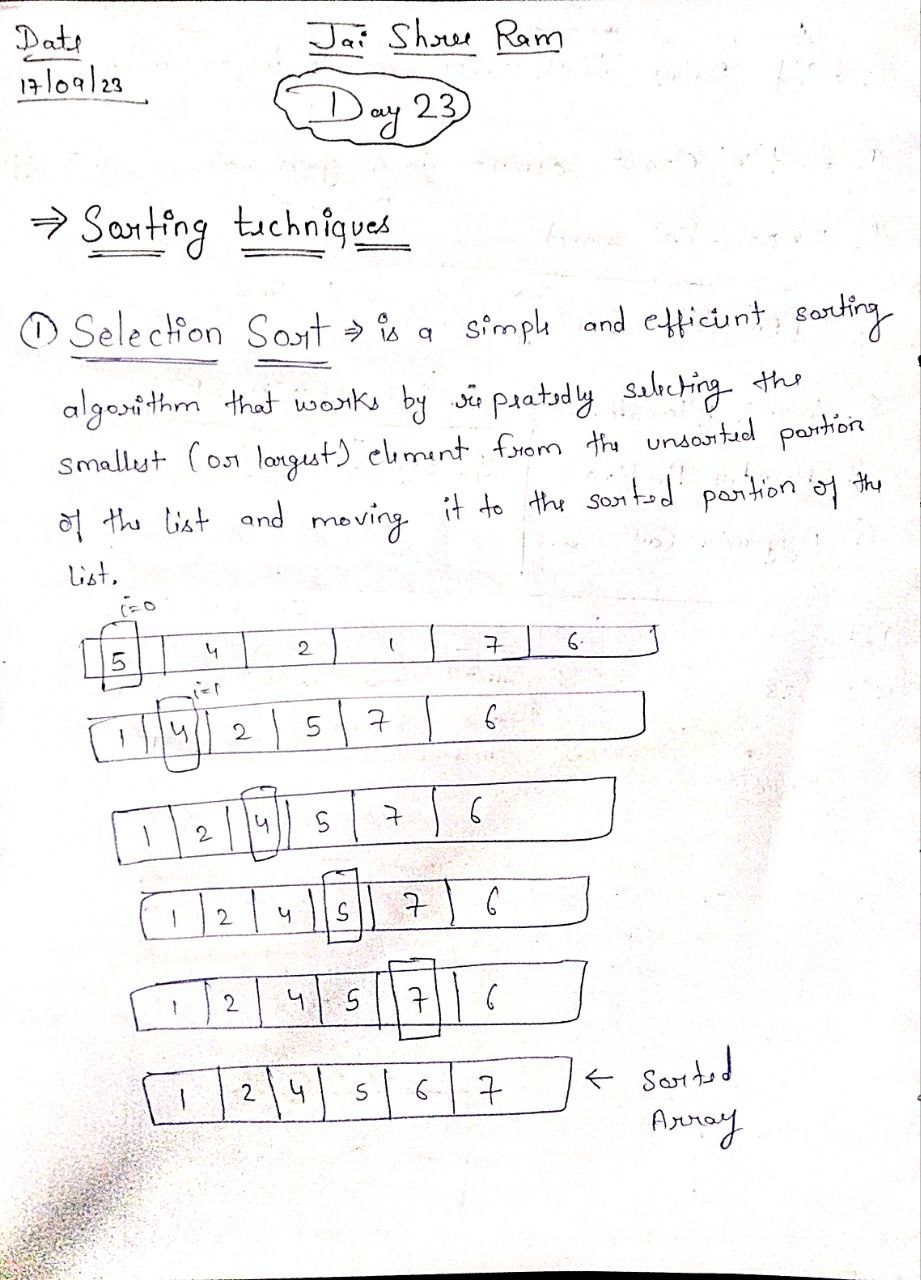 Date
Jai Shree Ram
17/09/23
Day 23
⇒ Sorting techniques
① Selection Sort ⇒ is a simple and efficient sorting
algorithm that works by repeatedly selecting the
smallest (or largest) element from the unsorted portion
of the list and moving it to the sorted portion of the
list.
i=0
5 4 2 1 7 6
i=1
1 4 2 5 7 6
1 2 4 5 7 6
1 2 4 5 7 6
1 2 4 5 7 6
1 2 4 5 6 7 ← Sorted
Array